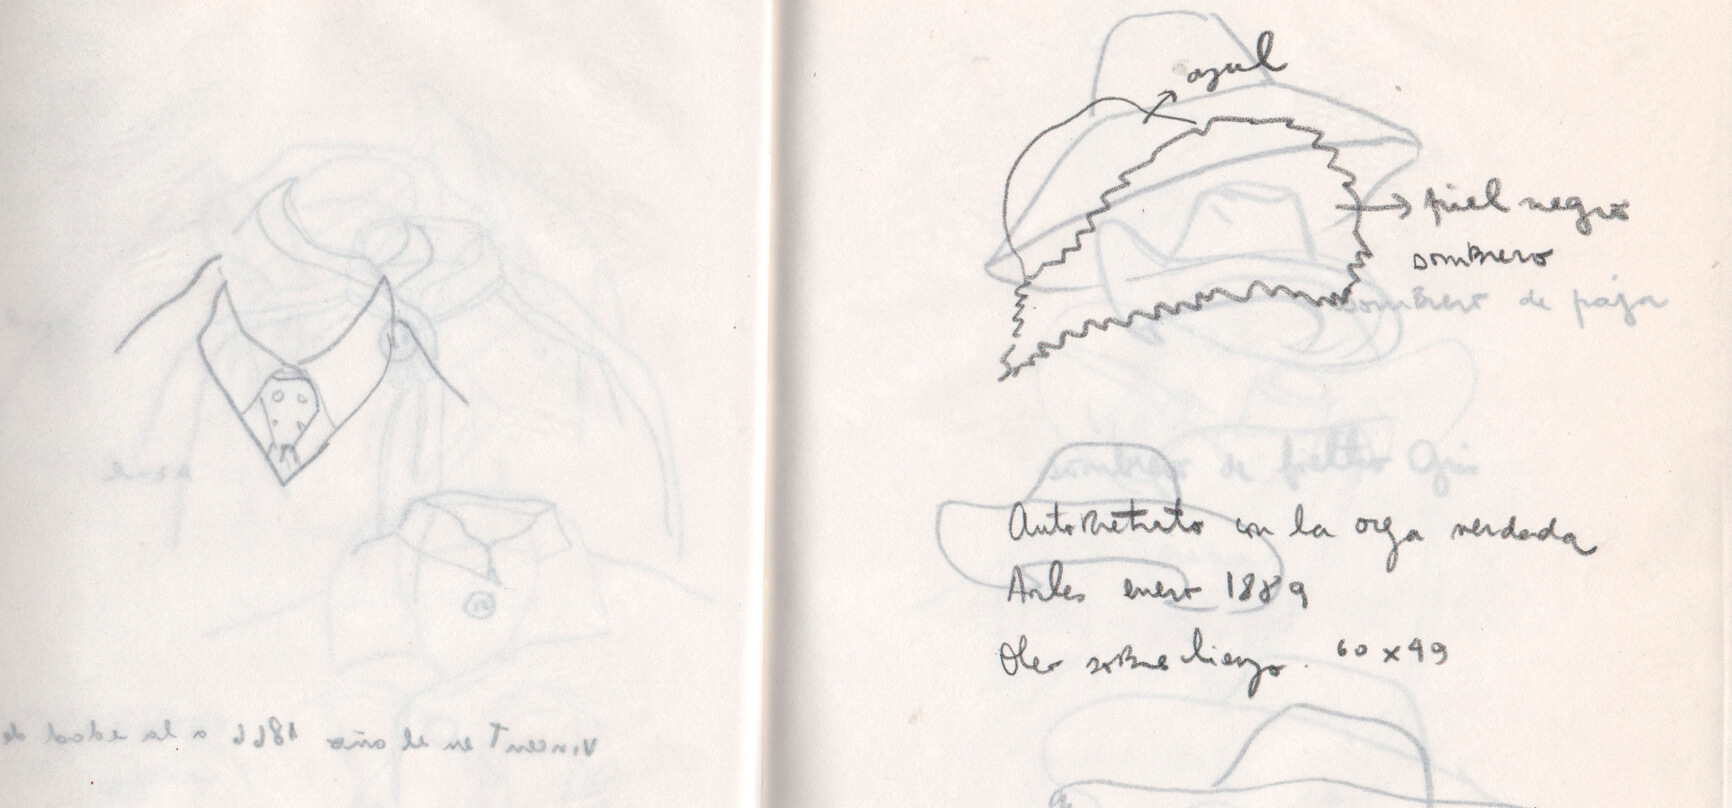 Vincent en el año 1866 a la edad de
azul
piel negro
sombrero
sombrero de paja
sombrero de fieltro Gris
Autorretrato con la oreja vendada
Arles enero 1889
Oleo sobre lienzo. 60 x 49